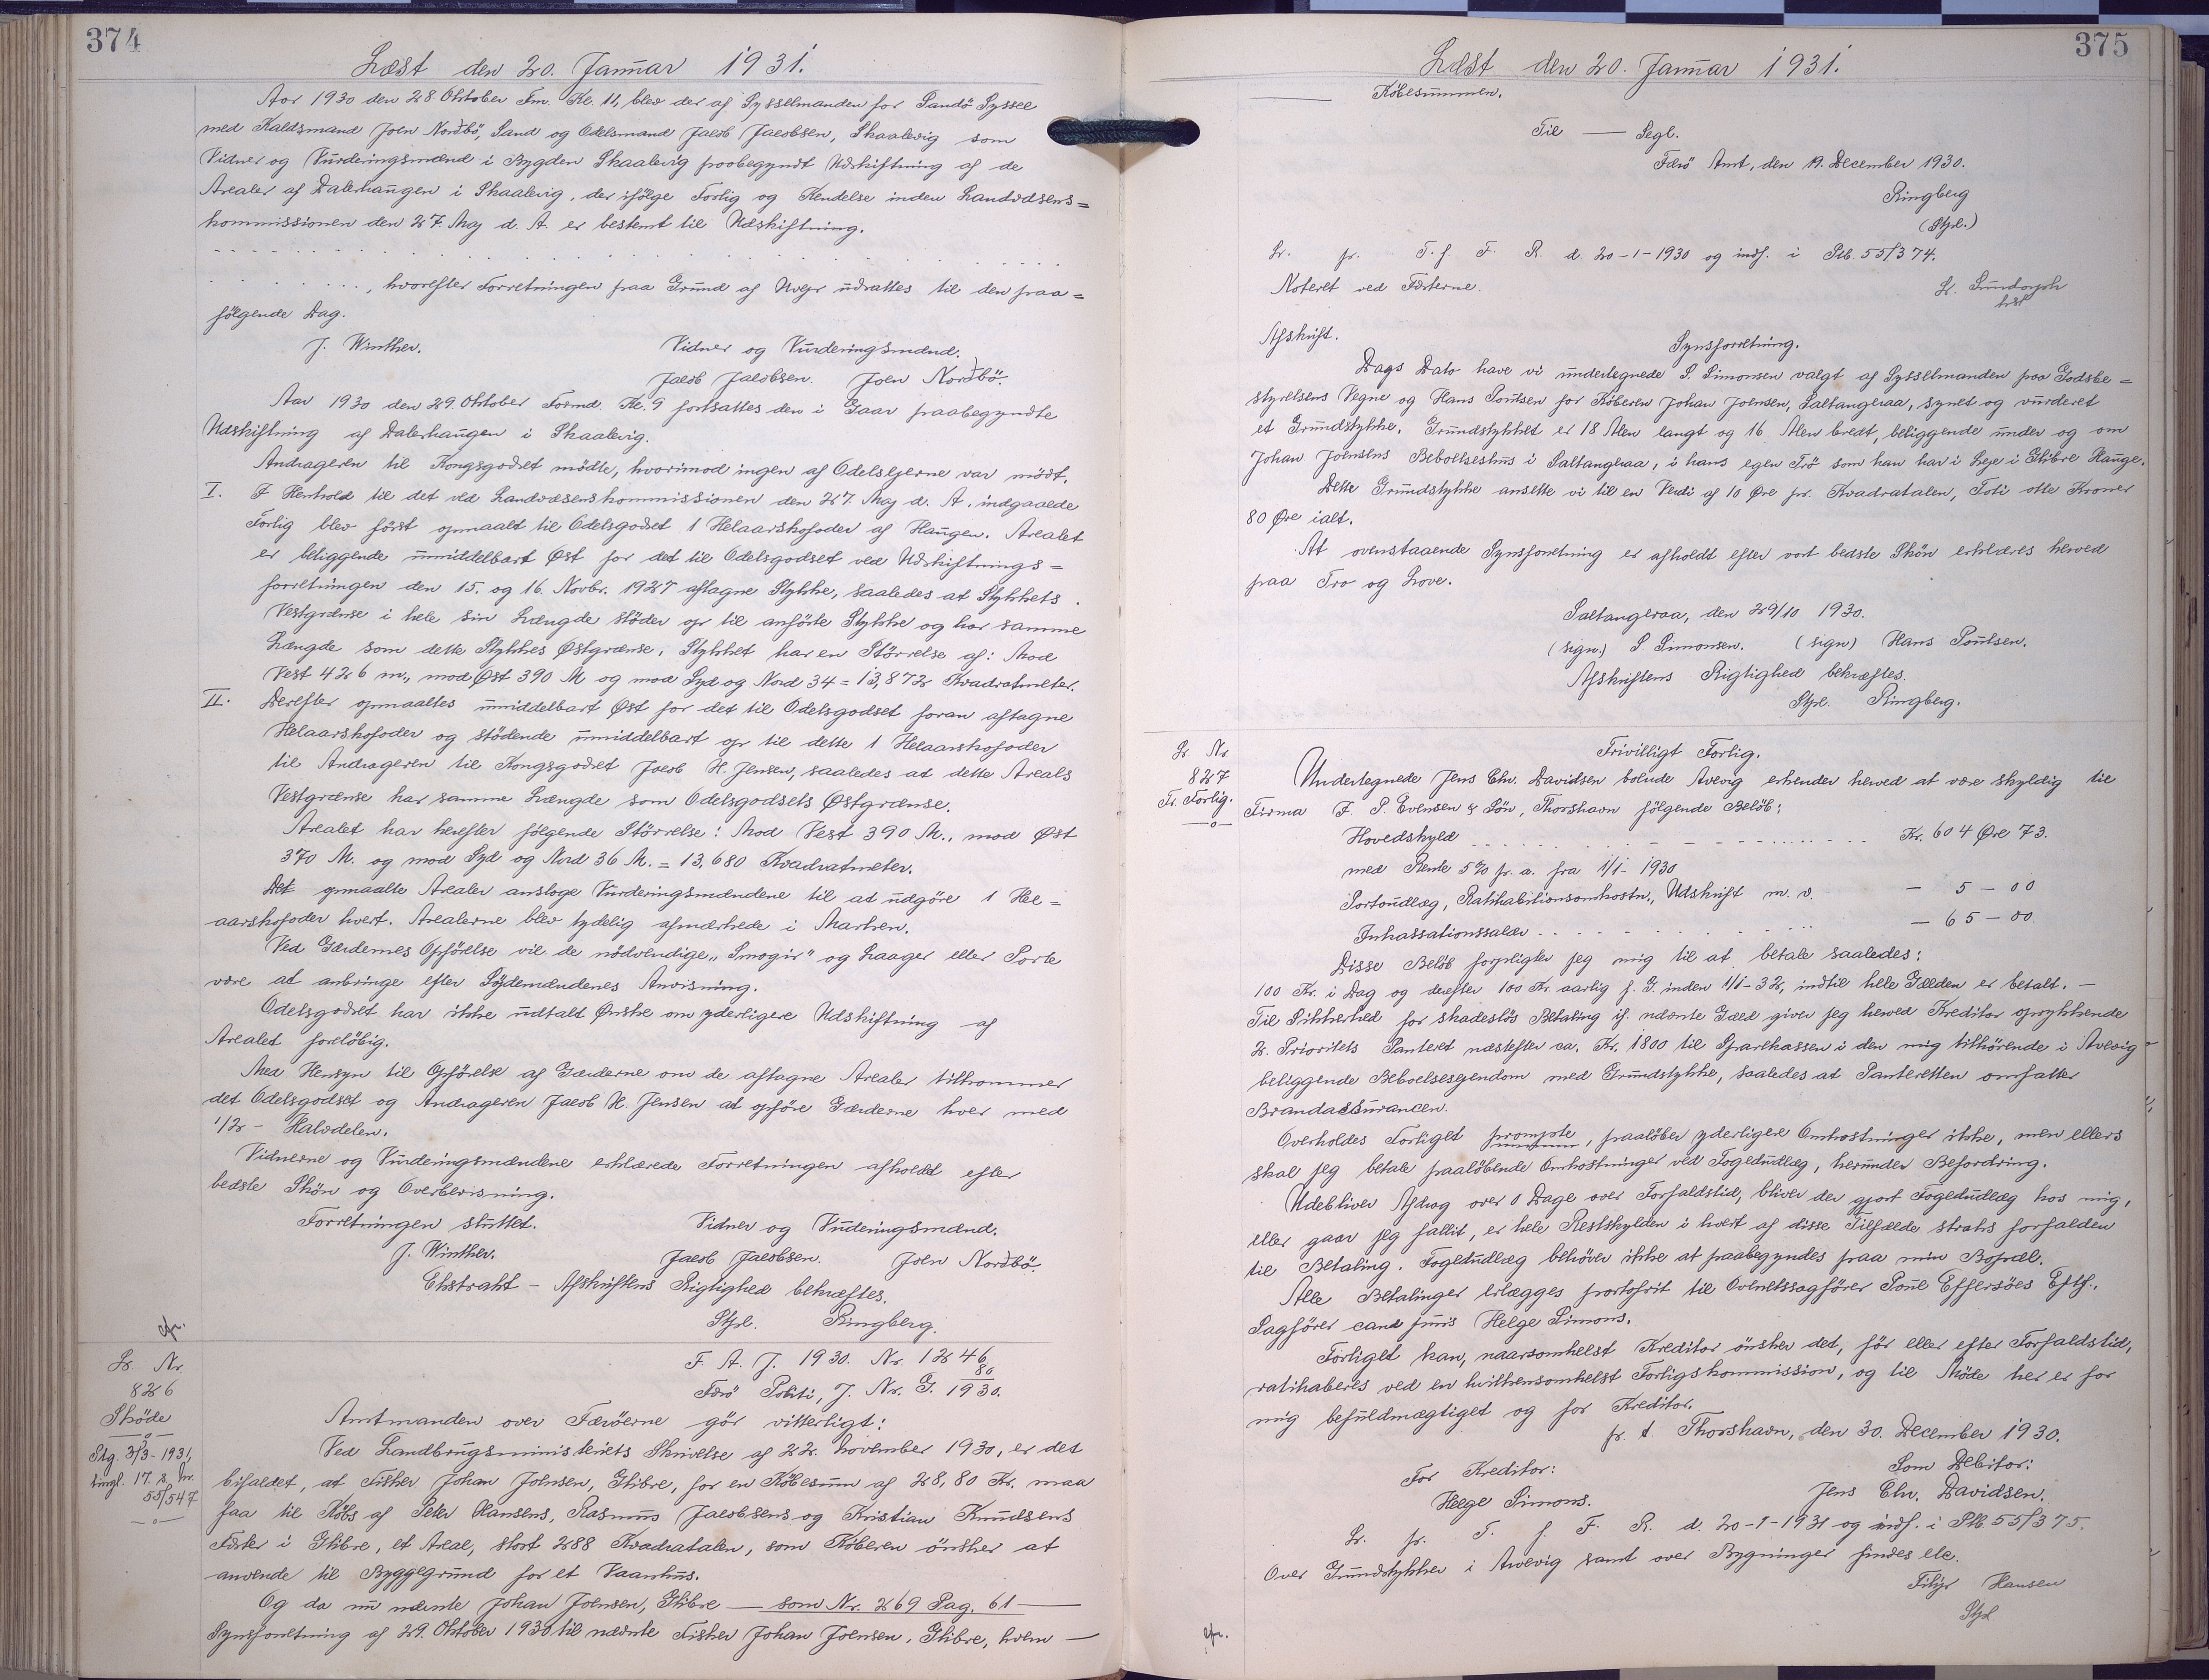 374
Læst den 20. Januar 1931.
Aar 1930 den 28 Oktober Fm. Kl. 11, blev der af Sysselmanden for Sandö Syssel
med Kaldsmand Joen Nordbö, Sand og Odelsmand Jacob Jacobsen, Skaalevig som
Vidner og Vurderingsmænd i Bygden Skaalevig paabegyndt Udskiftning af de
Arealer af Dalerhaugen i Skaalevig, der ifölge Forlig og Kendelse inden Landvæsens=
kommissionen den 27. Maj d. A. er bestemt til Udskiftning.
. . . . . . . , hvorefter Forretningen paa Grund af Vejr udsattes til den paa=
fölgende Dag.
J. Winther. Vidner og Vurderingsmænd.
Jacob Jacobsen. Joen Nordbö.
Aar 1930 den 29. Oktober Formd. Kl. 9 fortsattes den i Gaar paabegyndte
Udskiftning af Dalerhaugen i Skaalevig.
Andrageren til Kongsgodset mödte, hvorimod ingen af Odelsejerne var mödt.
I. I Henhold til det ved Landvæsenskommissionen den 27. Maj d. A. indgaaede
Forlig blev först opmaalt til Odelsgodset 1 Helaarskofoder af Haugen. Arealet
er beliggende umiddelbart Øst for det til Odelsgodset ved Udskiftnings=
forretningen den 15. og 16. Novbr. 1927 aftagne Stykke, saaledes at Stykkets
Vestgrænse i hele sin Længde stöder op til anförte Stykke og har samme
Længde som dette Stykkes Østgrænse. Stykket har en Störrelse af: Mod
Vest 426 m., mod Øst 390 M og mod Syd og Nord 34 = 13,872 Kvadratmeter.
II. Derefter opmaaltes umiddelbart Øst for det til Odelsgodset foran aftagne
Helaarskofoder og stödende umiddelbart op til dette 1 Helaarskofoder
til Andrageren til Kongsgodset Jacob H. Jensen, saaledes at dette Areals
Vestgrænse har samme Længde som Odelsgodsets Østgrænse.
Arealet har herefter fölgende Störrelse: Mod Vest 390 M., mod Øst
370 M. og mod Syd og Nord 36 M. = 13,680 Kvadratmeter.
Det opmaalte Arealer ansloge Vurderingsmændene til at udgöre 1 Hel=
aarskofoder hvert. Arealerne blev tydelig afmærkede i Marken.
Ved Gærdernes Opförelse vil de nödvendige "Smogir" og Laager eller Porte
være at anbringe efter Sydemændenes Anvisning.
Odelsgodset har ikke udtalt Ønske om yderligere Udskiftning af
Arealet foreløbig.
Med Hensyn til Opförelse af Gærderne om de aftagne Arealer tilkommer
det Odelsgodset og Andrageren Jacob H. Jensen at opföre Gærderne hver med
1/2 - Halvdelen.
Vidnerne og Vurderingsmændene erklærede Forretningen afholdt efter
bedste Skön og Overbevisning.
Forretningen sluttet. Vidner og Vurderingsmænd.
J. Winther. Jacob Jacobsen. Joen Nordbö.
Ekstrakt - Afskriftens Rigtighed bekræftes.
Stpl. Ringberg.
cfr.
Lr Nr
826
Sköde
Stg. 3/3-1931,
tingl. 17. s. M.
55/547
F. A. J. 1930. Nr. 1246
Færö Politi, J. Nr. G. 80/1930.
Amtmanden over Færöerne gör vitterligt:
Ved Landbrugsministeriets Skrivelse af 22. November 1930, er det
bifaldet, at Fisker Johan Joensen, Glibre, for en Købesum af 28,80 Kr. maa
faa til Købs af Peter Hansens, Rasmus Jacobsens og Kristian Knudsens
Fæster i Glibre, et Areal, stort 288 Kvadratalen, som Køberen önsker at
anvende til Byggegrund for et Vaanhus.
Og da nu nævnte Johan Joensen, Glibre — som Nr. 269 Pag. 61 —
Synsforretning af 29. Oktober 1930 til nævnte Fisker Johan Joensen, Glibre, hvem —
375
Læst den 20. Januar 1931.
— Købesummen.
Til — Segl.
Færö Amt, den 19. December 1930.
Ringberg
(Stpl.)
Lr. pr. T. f. F. R. d. 20-1-1930 og indf. i Ptb. 55/374.
Noteret ved Fæsterne.
Afskrift. Synsforretning.
Dags Dato have vi undertegnede S. Simonsen valgt af Sysselmanden paa Godsbe=
styrelsens Vegne og Hans Poulsen for Køberen Johan Joensen, Saltangeraa, synet og vurderet
et Grundstykke. Grundstykket er 18 Alen langt og 16 Alen bredt, beliggende under og om
Johan Joensens Beboelseshus i Saltangeraa, i hans egen Trö som han har i Leje i Glibre Hauge.
Dette Grundstykke ansætte vi til en Verdi af 10 Øre pr. Kvadratalen, Toti otte Kroner
80 Øre ialt.
At ovenstaaende Synsforretning er afholdt efter vort bedste Skön erklæres herved
paa Tro og Love.
Saltangeraa, den 29/10 1930.
(sign.) S Simonsen. (sign) Hans Poulsen.
Afskriftens Rigtighed bekræftes.
Stpl. Ringberg.
Lr Nr
827
Fr. Forlig.
Frivilligt Forlig.
Undertegnede Jens Chr. Davidsen boende Avevig erkender herved at være skyldig til
Firma I. P. Evensen & Sön, Thorshavn fölgende Belöb:
Hovedskyld . . . . . . Kr. 604 Øre 73.
med Rente 5% pr. a. fra 1/1- 1930
Portoudlæg, Ratihabitionsomkostn., Udskrift m. v. — 5 — 00
Inkassationssalær . . . . . . — 65 — 00
Disse Belöb forpligter jeg mig til at betale saaledes:
100 Kr. i Dag og derefter 100 Kr. aarlig f. G. inden 1/1-32, indtil hele Gælden er betalt. —
Til Sikkerhed for skadeslös Betaling if. nævnte Gæld giver jeg herved Kreditor oprykkende
2. Prioritets Panteret næstefter ca. Kr. 1800 til Sparekassen i den mig tilhörende i Avevig
beliggende Beboelsesejendom med Grundstykke, saaledes at Panteretten omfatter
Brandassurancen.
Overholdes Forliget prompte, paalöber yderligere Omkostninger ikke, men ellers
skal jeg betale paalöbende Omkostninger ved Fogedudlæg, herunder Befordring.
Udebliver Afdrag over 8 Dage over Forfaldstid, bliver der gjort Fogedudlæg hos mig,
eller gaar jeg fallit, er hele Restskylden i hvert af disse Tilfælde straks forfalden
til Betaling. Fogedudlæg behöver ikke at paabegyndes paa min Bopæl.
Alle Betalinger erlægges portofrit til Overretssagförer Poul Effersöes Eftf.,
Sagförer cand juris Helge Simons.
Forliget kan, naarsomhelst Kreditor önsker det, för eller efter Forfaldstid,
ratihaberes ved en hvilkensomhelst Forligskommission, og til Möde her er for
mig befuldmægtiget og for Kreditor.
p. t. Thorshavn, den 30. December 1930.
For Kreditor: Som Debitor:
Helge Simons. Jens Chr. Davidsen.
Lr. pr. T. f. F. R. d. 20-1-1931 og indf. i Ptb. 55/375.
Over Grundstykker i Avevig samt over Bygninger findes ell.
Filip Hansen
Stpl
cfr.